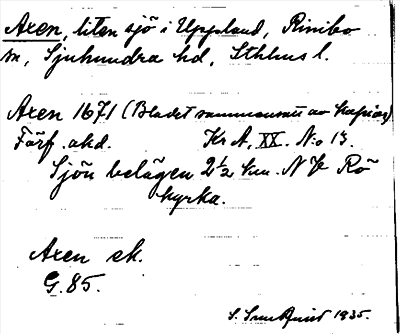 Axen, liten sjö i Uppland, Rimbo
sn, Sjuhundra hd, Sthlms l.
Axen 1671 (Bladet sammansatt av kopior)
Förf. akd. Kr A, XX. N:o 13.
Sjön belägen 2½ km. NV Rö
kyrka.
Axen ek.
G. 85.
S. Sundquist 1935.